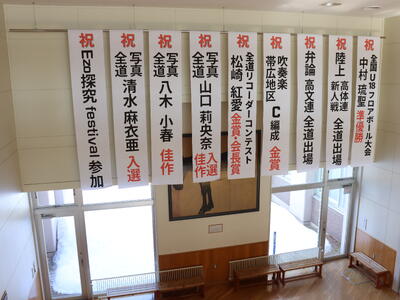 祝
全国U18フロアボール大会
中村 琉聖 準優勝
祝
陸上 高体連 新人戦 全道出場
祝
弁論 高文連 全道出場
祝
吹奏楽
帯広地区 C編成 金賞
祝
全道リコーダーコンテスト
松崎 紅愛 金賞・会長賞
祝
写真
全道 山口 莉央奈 入選 佳作
祝
写真
全道 八木 小春 佳作
祝
写真
全道 清水 麻衣亜 入選
祝
Ezo探究 festival 参加